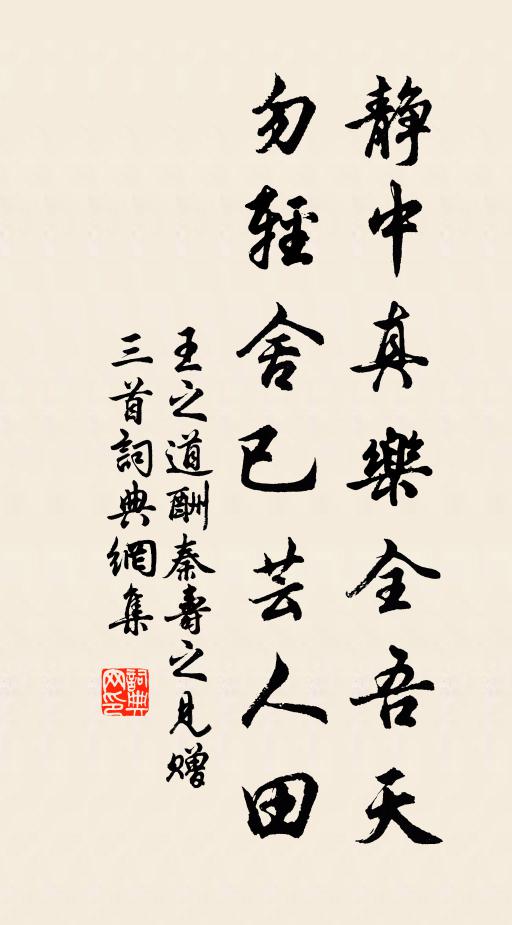 静中真樂全吾天
勿輕舍己芸人田
王之道酬秦壽之見赠
三首詞典網集
詞典網印